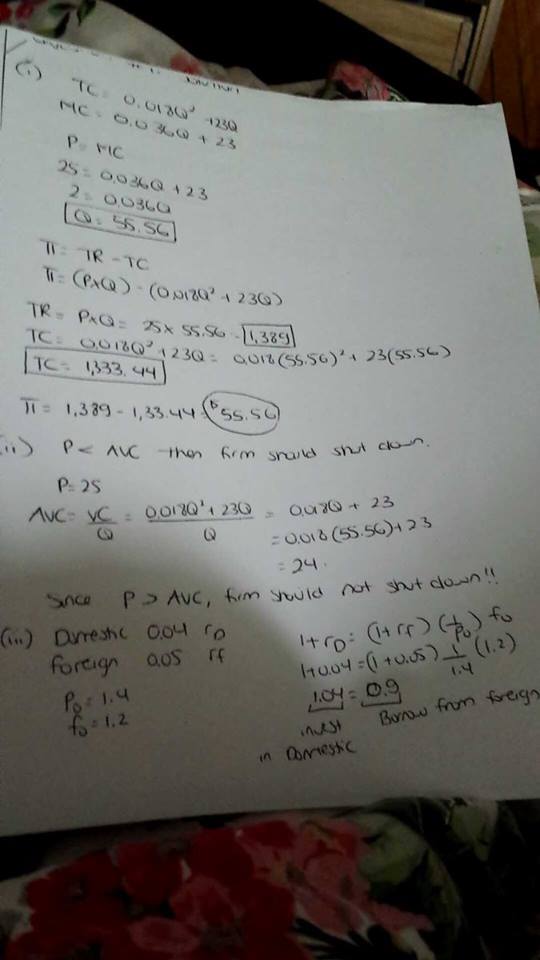 (i)
TC = 0.018Q² + 23Q
MC = 0.036Q + 23
P = MC
25 = 0.036Q + 23
2 = 0.036Q
Q = 55.56
π = TR - TC
π = (PxQ) - (0.018Q² + 23Q)
TR = PxQ = 25 x 55.56 = 1,389
TC = 0.018Q² + 23Q = 0.018(55.56)² + 23(55.56)
TC = 1,333.44
π = 1,389 - 1,33.44 = $55.56
(ii) P < AVC then firm should shut down.
P = 25
AVC = VC/Q = 0.018Q² + 23Q / Q = 0.018Q + 23
= 0.018(55.56) + 23
= 24.
Since P > AVC, firm should not shut down!!
(iii) Domestic 0.04 rD
foreign 0.05 rf
P₀ = 1.4
f₀ = 1.2
1 + rD = (1 + rf) (1/P₀) f₀
1 + 0.04 = (1 + 0.05) 1/1.4 (1.2)
1.04 = 0.9
invest in Domestic
Borrow from foreign